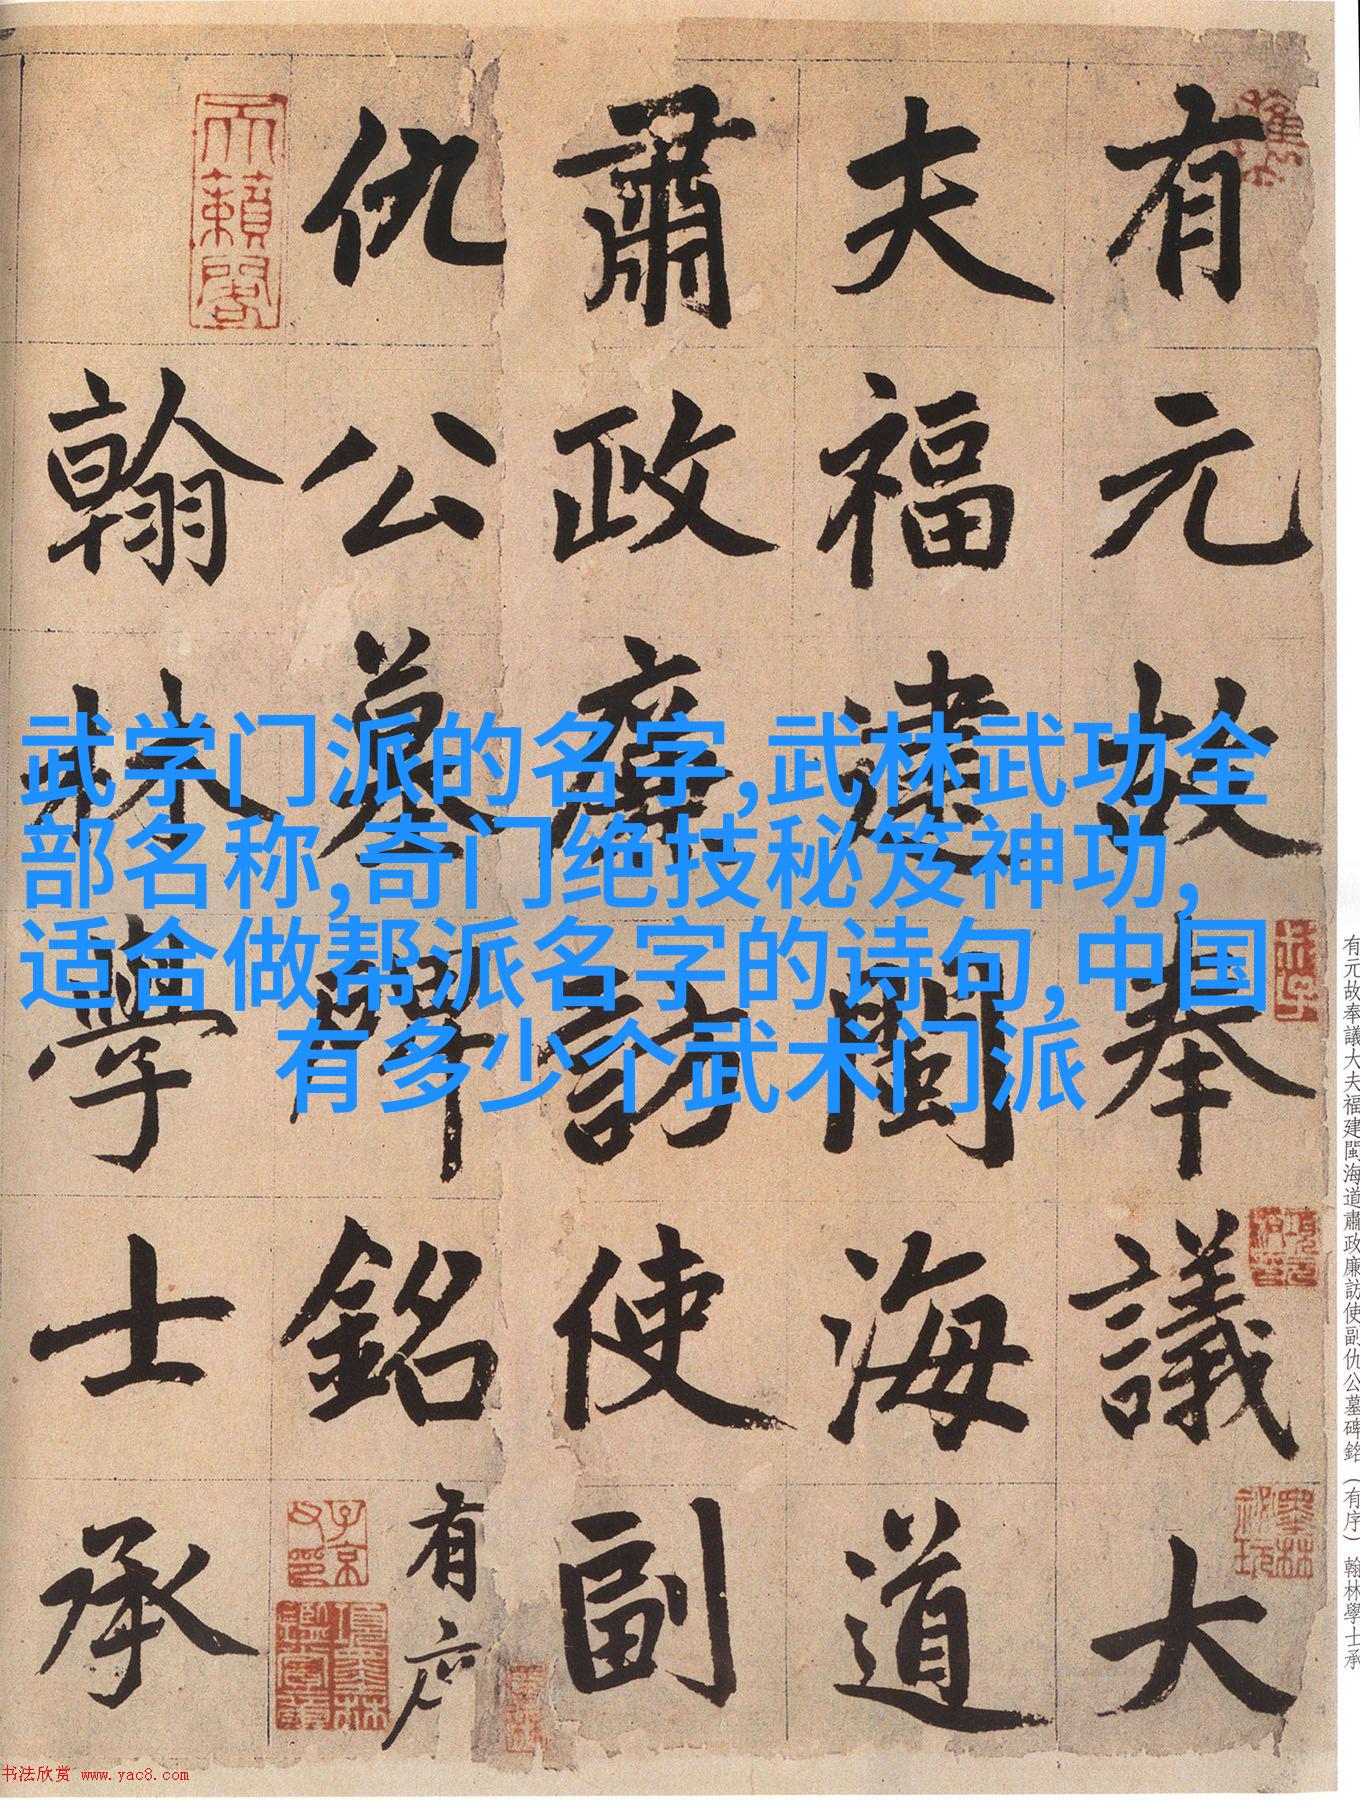 有元故奉議大
夫福建閩海道
肅政廉訪使副
仇公墓碑銘有序
翰林學士承
天籟閣
子京父印
項墨林鑑賞章
墨林祕玩
武学门派的名字,武林武功全
部名称,奇门绝技秘笈神功,
适合做帮派名字的诗句,中国
有多少个武术门派
有元故奉議大夫福建閩海道肅政廉訪使副仇公墓碑銘（有序）翰林學士承
书法欣赏 www.yac8.com